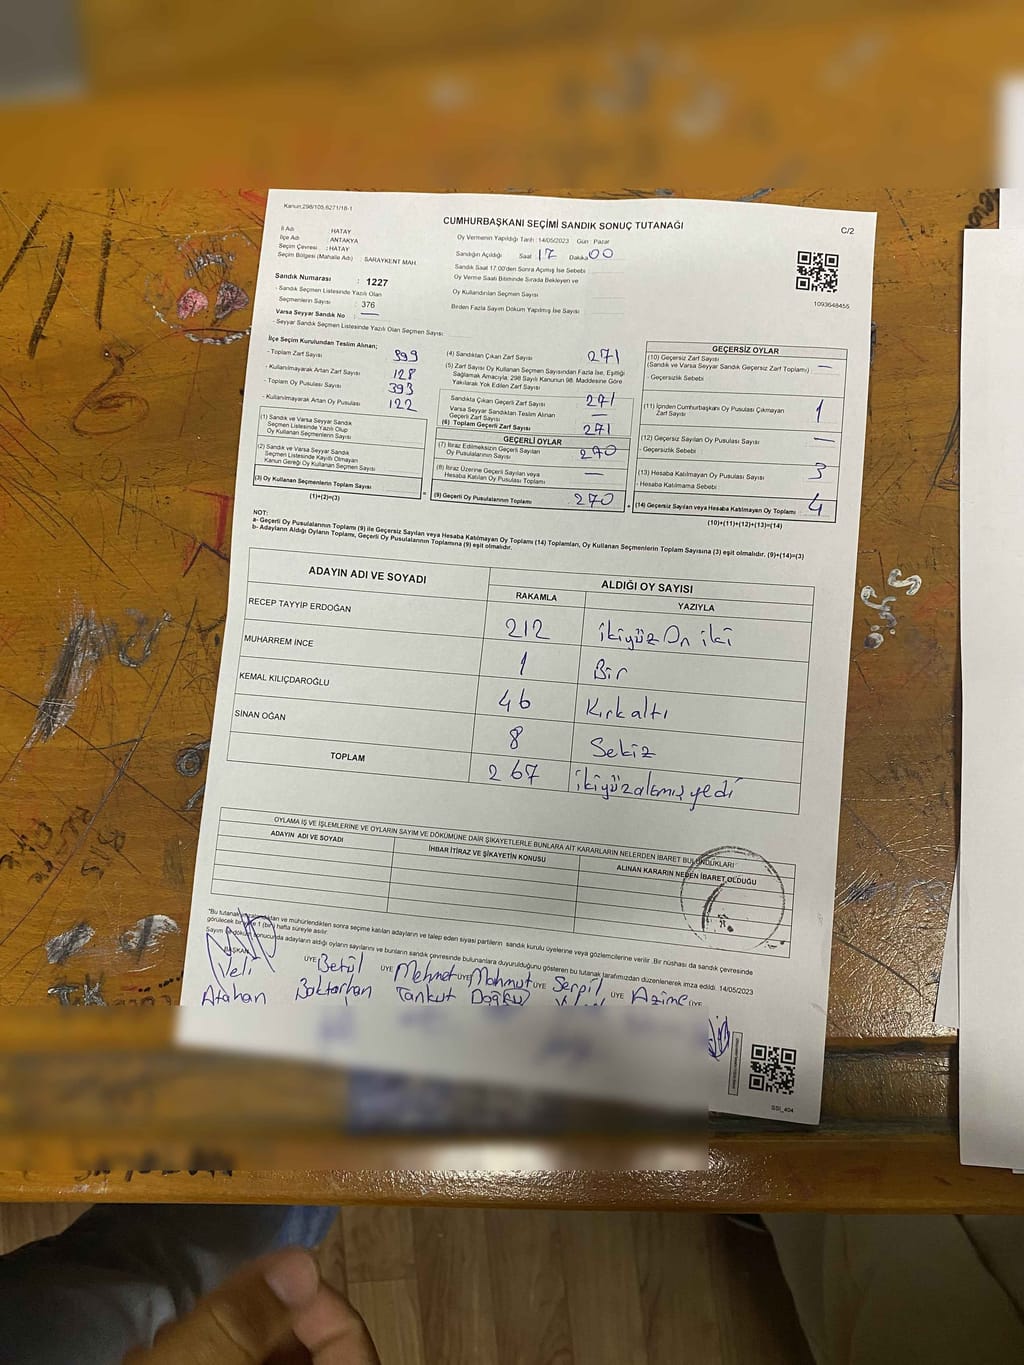 Kanun;298/105,6271/18-1
CUMHURBAŞKANI SEÇİMİ SANDIK SONUÇ TUTANAĞI
C/2
İl Adı : HATAY
İlçe Adı : ANTAKYA
Seçim Çevresi : HATAY
Seçim Bölgesi (Mahalle Adı) : SARAYKENT MAH.
Oy Vermenin Yapıldığı Tarih : 14/05/2023 Gün : Pazar
Sandığın Açıldığı Saat 17 Dakika 00
Sandık Saat 17.00'den Sonra Açımış İse Sebebi
Oy Verme Saati Bitiminde Sırada Bekleyen ve
Oy Kullandırılan Seçmen Sayısı
Birden Fazla Sayım Döküm Yapılmış İse Sayısı
1093648455
Sandık Numarası : 1227
- Sandık Seçmen Listesinde Yazılı Olan
Seçmenlerin Sayısı : 376
Varsa Seyyar Sandık No : —
- Seyyar Sandık Seçmen Listesinde Yazılı Olan Seçmen Sayısı:
İlçe Seçim Kurulundan Teslim Alınan;
- Toplam Zarf Sayısı 399
- Kullanılmayarak Artan Zarf Sayısı 128
- Toplam Oy Pusulası Sayısı 393
- Kullanılmayarak Artan Oy Pusulası 122
(1) Sandık ve Varsa Seyyar Sandık
Seçmen Listesinde Yazılı Olup
Oy Kullanan Seçmenlerin Sayısı
(2) Sandık ve Varsa Seyyar Sandık
Seçmen Listesinde Kayıtlı Olmayan
Kanun Gereği Oy Kullanan Seçmen Sayısı
(3) Oy Kullanan Seçmenlerin Toplam Sayısı
(1)+(2)=(3)
(4) Sandıktan Çıkan Zarf Sayısı 271
(5) Zarf Sayısı Oy Kullanan Seçmen Sayısından Fazla İse, Eşitliği
Sağlamak Amacıyla, 298 Sayılı Kanunun 98. Maddesine Göre
Yakılarak Yok Edilen Zarf Sayısı
Sandıkta Çıkan Geçerli Zarf Sayısı 271
Varsa Seyyar Sandıktan Teslim Alınan
Geçerli Zarf Sayısı —
(6) Toplam Geçerli Zarf Sayısı 271
GEÇERLİ OYLAR
(7) İtiraz Edilmeksizin Geçerli Sayılan
Oy Pusulalarının Sayısı 270
(8) İtiraz Üzerine Geçerli Sayılan veya
Hesaba Katılan Oy Pusulası Toplamı —
= (9) Geçerli Oy Pusulalarının Toplamı 270
GEÇERSİZ OYLAR
(10) Geçersiz Zarf Sayısı
(Sandık ve Varsa Seyyar Sandık Geçersiz Zarf Toplamı) —
- Geçersizlik Sebebi
(11) İçinden Cumhurbaşkanı Oy Pusulası Çıkmayan
Zarf Sayısı 1
(12) Geçersiz Sayılan Oy Pusulası Sayısı —
- Geçersizlik Sebebi
(13) Hesaba Katılmayan Oy Pusulası Sayısı 3
- Hesaba Katılmama Sebebi
+ (14) Geçersiz Sayılan veya Hesaba Katılmayan Oy Toplamı 4
(10)+(11)+(12)+(13)=(14)
NOT:
a- Geçerli Oy Pusulalarının Toplamı (9) ile Geçersiz Sayılan veya Hesaba Katılmayan Oy Toplamı (14) Toplamları, Oy Kullanan Seçmenlerin Toplam Sayısına (3) eşit olmalıdır. (9)+(14)=(3)
b- Adayların Aldığı Oyların Toplamı, Geçerli Oy Pusulalarının Toplamına (9) eşit olmalıdır.
ADAYIN ADI VE SOYADI
ALDIĞI OY SAYISI
RAKAMLA YAZIYLA
RECEP TAYYİP ERDOĞAN 212 ikiyüz On iki
MUHARREM İNCE 1 Bir
KEMAL KILIÇDAROĞLU 46 Kırkaltı
SİNAN OĞAN 8 Sekiz
TOPLAM 267 ikiyüzaltmışyedi
OYLAMA İŞ VE İŞLEMLERİNE VE OYLARIN SAYIM VE DÖKÜMÜNE DAİR ŞİKAYETLERLE BUNLARA AİT KARARLARIN NELERDEN İBARET BULUNDUKLARI
ADAYIN ADI VE SOYADI
İHBAR İTİRAZ VE ŞİKAYETİN KONUSU
ALINAN KARARIN NEDEN İBARET OLDUĞU
"Bu tutanak ve mühürlendikten sonra seçime katılan adayların ve talep eden siyasi partilerin sandık kurulu üyelerine veya gözlemcilerine verilir. Bir nüshası da sandık çevresinde
görülecek bir 1 (bir) hafta süreyle asılır.
Sayım sonucunda adayların aldığı oyların sayılarını ve bunların sandık çevresinde bulunanlara duyurulduğunu gösteren bu tutanak tarafımızdan düzenlenerek imza edildi. 14/05/2023
BAŞKAN ÜYE ÜYE ÜYE ÜYE ÜYE ÜYE
Veli Betül Mehmet Mahmut Serpil Azime
Atahan Baktarhan Tankut Doğku
SSI_404